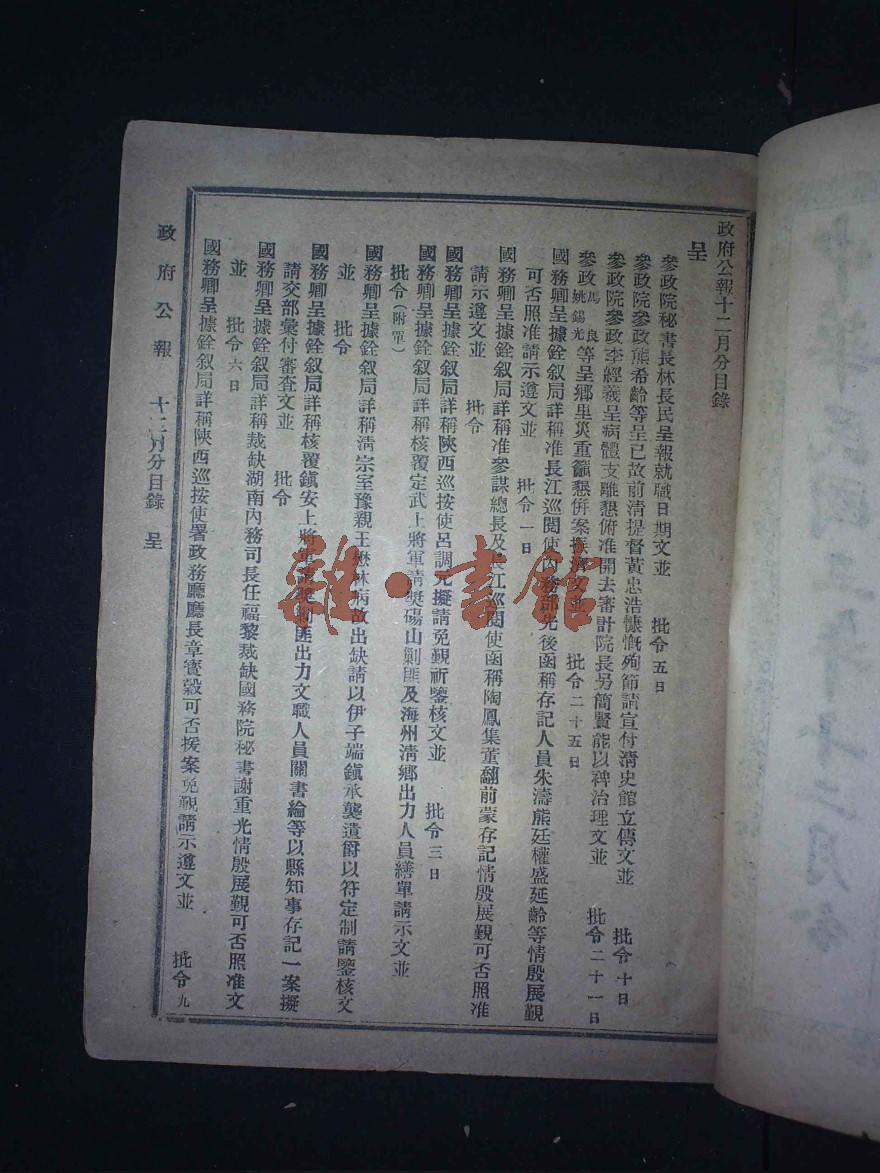 政府公報十二月分目錄
呈
參政院秘書長林長民呈報就職日期文並 批令五日
參政院參政熊希齡等呈已故前清提督黃忠浩慷慨殉節請宣付清史館立傳文並 批令十日
參政院參政李經羲呈病體支離懇俯准開去審計院長另簡賢能以裨治理文並 批令二十一日
參政馬良姚錫光等呈鄉里災重籲懇併案振濟文並 批令二十五日
國務卿呈據銓叙局詳稱准長江巡閱使內務部先後函稱存記人員朱濤熊廷權盛延齡等情殷展覲
可否照准請示遵文並 批令一日
國務卿呈據銓叙局詳稱准參謀總長及長江巡閱使函稱陶鳳集董翻前蒙存記情殷展覲可否照准
請示遵文並 批令
國務卿呈據銓叙局詳稱陝西巡按使呂調元擬請免覲祈鑒核文並 批令三日
國務卿呈據銓叙局詳稱核覆定武上將軍請獎碭山剿匪及海州清鄉出力人員繕單請示文並
批令(附單)
國務卿呈據銓叙局詳稱清宗室豫親王懋林病故出缺請以伊子端鎮承襲遺爵以符定制請鑒核文
並 批令
國務卿呈據銓叙局詳稱核覆鎮安上將軍請獎剿匪出力文職人員關書綸等以縣知事存記一案擬
請交部彙付審查文並 批令
國務卿呈據銓叙局詳稱裁缺湖南內務司長任福黎裁缺國務院秘書謝重光情殷展覲可否照准文
並 批令六日
國務卿呈據銓叙局詳稱陝西巡按使署政務廳廳長章寶穀可否援案免覲請示遵文並 批令九
政府公報 十二月分目錄 呈
雜·書館